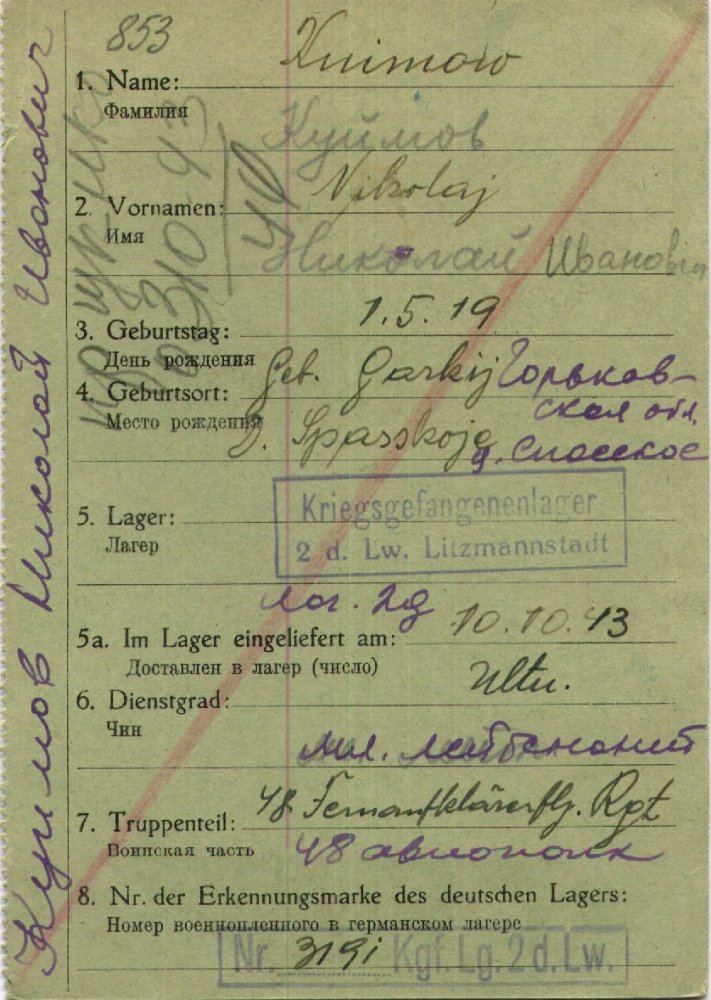 853
1. Name: Kuimow
Фамилия
Куимов
2. Vornamen: Nikolaj
Имя
Николай Иванович
3. Geburtstag: 1.5.19
День рождения
4. Geburtsort: Geb. Garkij Горьков-
Место рождения ская обл.
D. Spasskoje д. Спасское
5. Lager: Kriegsgefangenenlager
Лагер 2 d. Lw. Litzmannstadt
лаг. 2д
5a. Im Lager eingeliefert am: 10.10.43
Доставлен в лагер (число)
6. Dienstgrad: Ultn.
Чин
мл. лейтенант
7. Truppenteil: 48. Fernaufklärerflg. Rgt
Воинская часть 48 авиополк
8. Nr. der Erkennungsmarke des deutschen Lagers:
Номер военнопленного в германском лагере
Nr. 3191 Kgf. Lg. 2 d. Lw.
Куимов Николай Иванович